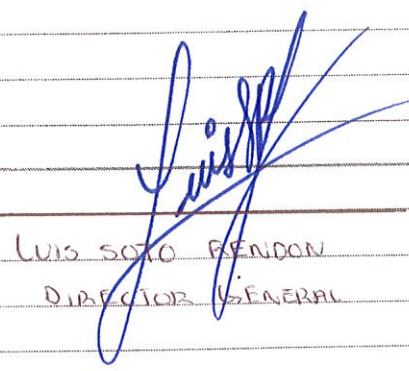 Luis
LUIS SOTO RENDON
DIRECTOR GENERAL